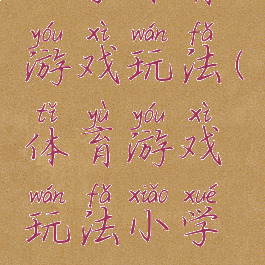 yóu xì wán fǎ
游戏玩法(
tǐ yù yóu xì
体育游戏
wán fǎ xiǎo xué
玩法小学